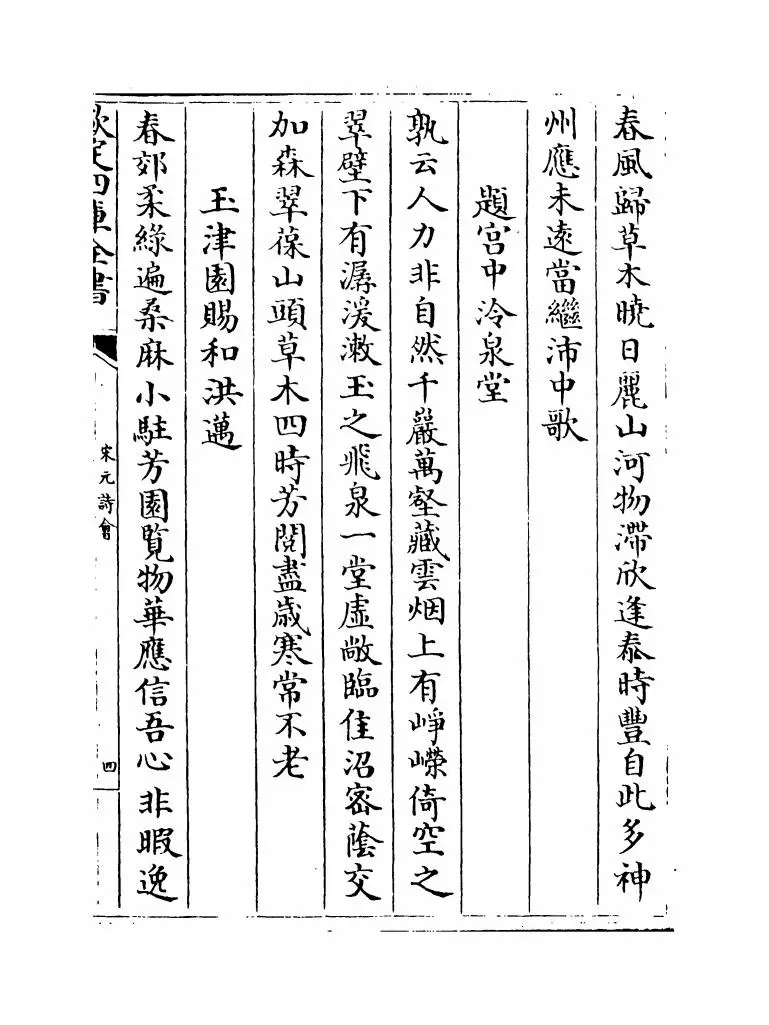 春風歸草木曉日麗山河物滯欣逢泰時豐自此多神
州應未遠當繼沛中歌
題宮中泠泉堂
孰云人力非自然千巖萬壑藏雲烟上有崢嶸倚空之
翠壁下有潺湲漱玉之飛泉一堂虛敞臨佳沼密蔭交
加森翠葆山頭草木四時芳閱盡歲寒常不老
玉津園賜和洪邁
春郊柔綠遍桑麻小駐芳園覧物華應信吾心非暇逸
欽定四庫全書
宋元詩會
四